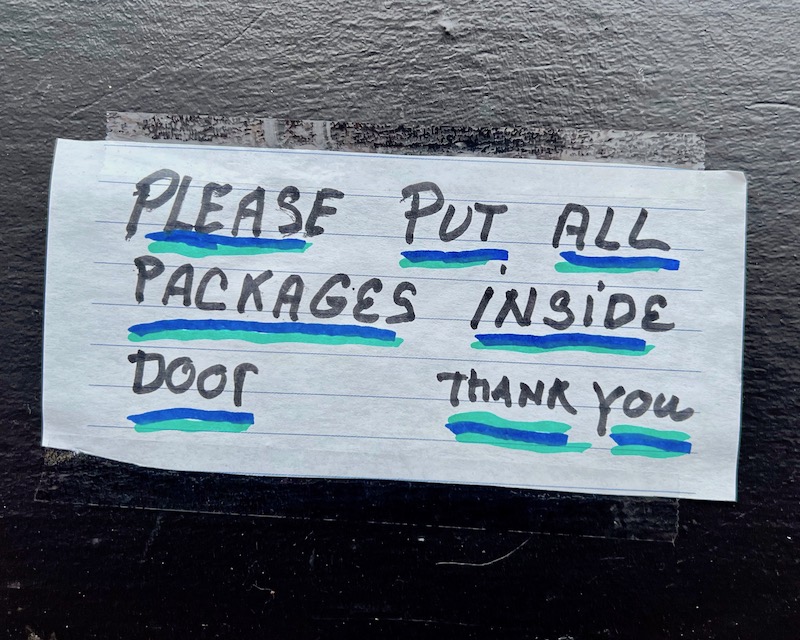 PLEASE PUT ALL
PACKAGES iNSiDE
DOOr THANK you